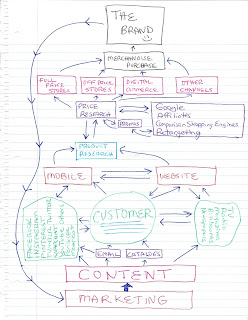 THE
BRAND
MERCHANDISE
PURCHASE
FULL
PRICE
STORES
OFF PRICE
STORES
DIGITAL
COMMERCE
OTHER
CHANNELS
PRICE
RESEARCH
PROMOS
Google
Affiliates
Comparison Shopping Engines
Retargeting
PRODUCT
RESEARCH
MOBILE
WEBSITE
CUSTOMER
FACEBOOK
INSTAGRAM
PINTEREST
TUMBLR
TWITTER
YOUTUBE
EMAIL
CATALOGS
CONTENT
MARKETING